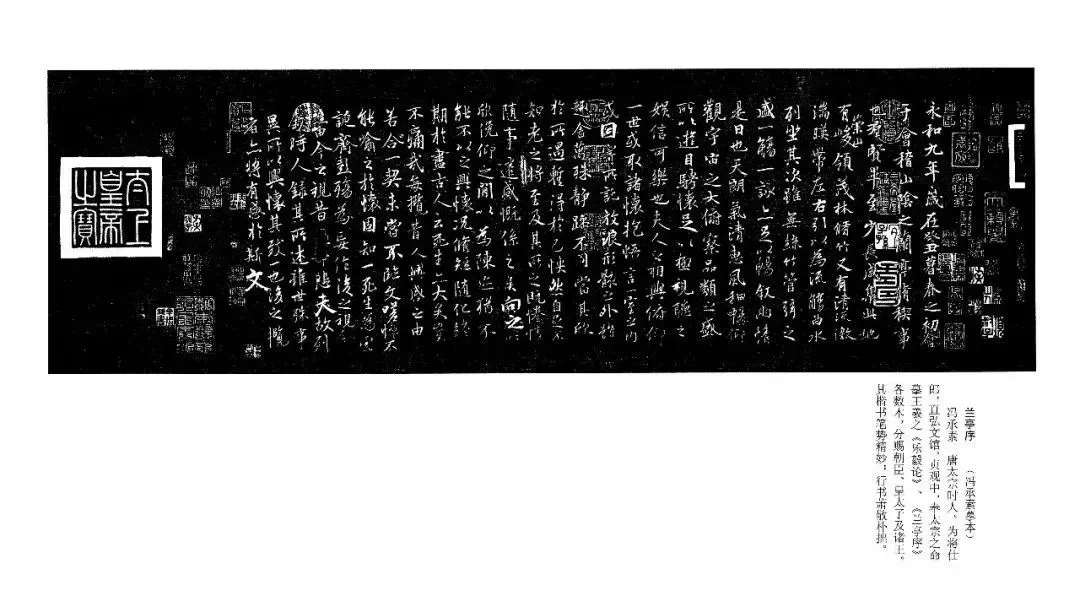 永和九年歲在癸丑暮春之初會
于會稽山陰之蘭亭脩稧事
也羣賢畢至少長咸集此地
有崇山峻領茂林脩竹又有清流激
湍暎帶左右引以為流觴曲水
列坐其次雖無絲竹管弦之
盛一觴一詠亦足以暢叙幽情
是日也天朗氣清惠風和暢仰
觀宇宙之大俯察品類之盛
所以遊目騁懷足以極視聽之
娛信可樂也夫人之相與俯仰
一世或取諸懷抱悟言一室之內
或因寄所託放浪形骸之外雖
趣舍萬殊靜躁不同當其欣
於所遇蹔得於己怏然自足不
知老之將至及其所之既惓情
隨事遷感慨係之矣向之
欣俛仰之閒以為陳跡猶不
能不以之興懷況脩短隨化終
期於盡古人云死生亦大矣豈
不痛哉每攬昔人興感之由
若合一契未嘗不臨文嗟悼不
能喻之於懷固知一死生為虛
誕齊彭殤為妄作後之視
今之視昔悲夫故列
敘時人錄其所述雖世殊事
異所以興懷其致一也後之攬
者亦將有感於斯文
太上皇帝之寶
兰亭序 （冯承素摹本）
冯承素 唐太宗时人。为将仕
郎，直弘文馆，贞观中，奉太宗之命
摹王羲之《乐毅论》、《兰亭序》
各数本，分赐朝臣、皇太子及诸王。
其楷书笔势精妙，行书萧散朴拙。